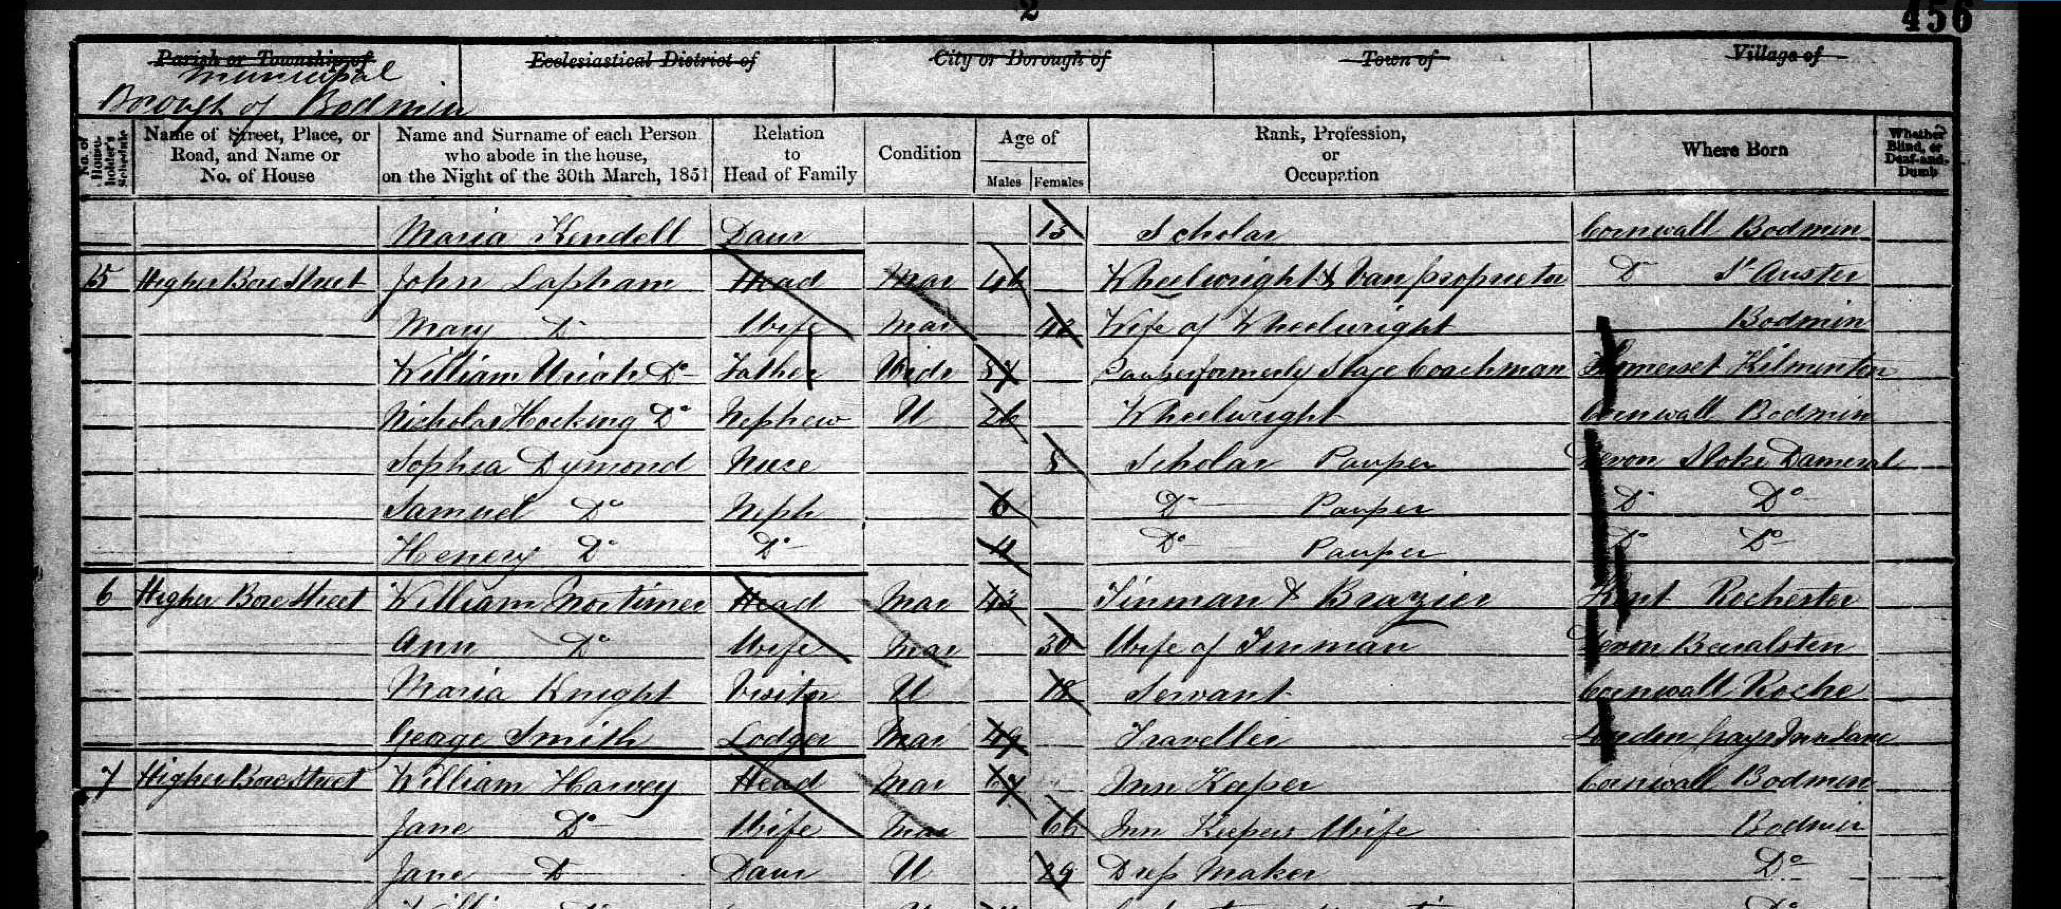 2
456
Parish or Township of
Ecclesiastical District of
City or Borough of
Town of
Village of
Municipal
Borough of Bodmin
No. of House-holder's Schedule
Name of Street, Place, or Road, and Name or No. of House
Name and Surname of each Person who abode in the house, on the Night of the 30th March, 1851
Relation to Head of Family
Condition
Age of
Males
Females
Rank, Profession, or Occupation
Where Born
Whether Blind, or Deaf-and-Dumb
Maria Kendell Daur Scholar Cornwall Bodmin
5 Higher Bore Street John Lapham Head Mar Wheelwright & Van proprietor Do St Auster
Mary Do Wife Mar 42 Wife of Wheelwright Bodmin
William Uriah Do Father Widr Pauper formerly Stage Coachman Somerset Kilminton
Nicholas Hocking Do Nephew U 26 Wheelwright Cornwall Bodmin
Sophia Dymond Niece Scholar Pauper Devon Stoke Dameral
Samuel Do Neph 6 Do Pauper Do Do
Henery Do Do 4 Do Pauper Do Do
6 Higher Bore Street William Mortimer Head Mar 43 Tinman & Brazier Kent Rochester
Ann Do Wife Mar 30 Wife of Tinman Devon Bearalsten
Maria Knight Visitor U 18 Servant Cornwall Roche
George Smith Lodger Mar 49 Traveller London Grays Inn Lane
7 Higher Bore Street William Harvey Head Mar 67 Inn Keeper Cornwall Bodmin
Jane Do Wife Mar 66 Inn Keepers Wife Bodmin
Jane D Daur U 29 Dress Maker Do